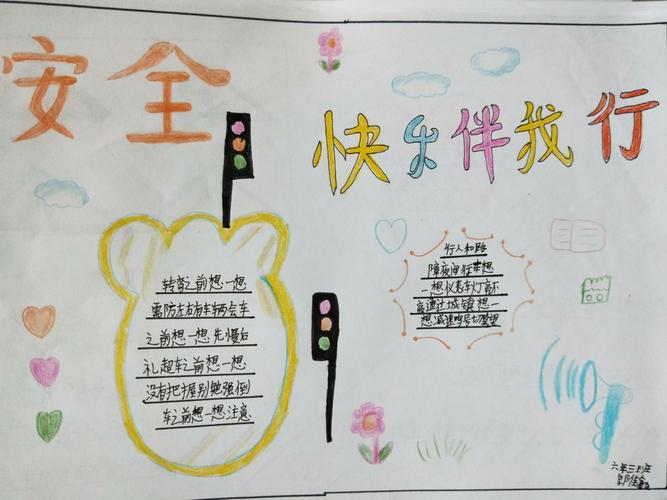 安全
快乐伴我行
转弯之前想一想
需防左右有车辆会车
之前想一想先慢后
礼超车之前想一想
没有把握别勉强倒
车之前想一想注意
行人和路
障夜间行车想
一想仪表车灯高不
高遭过城镇想一
想减速鸣号切
六年三班
郭佳